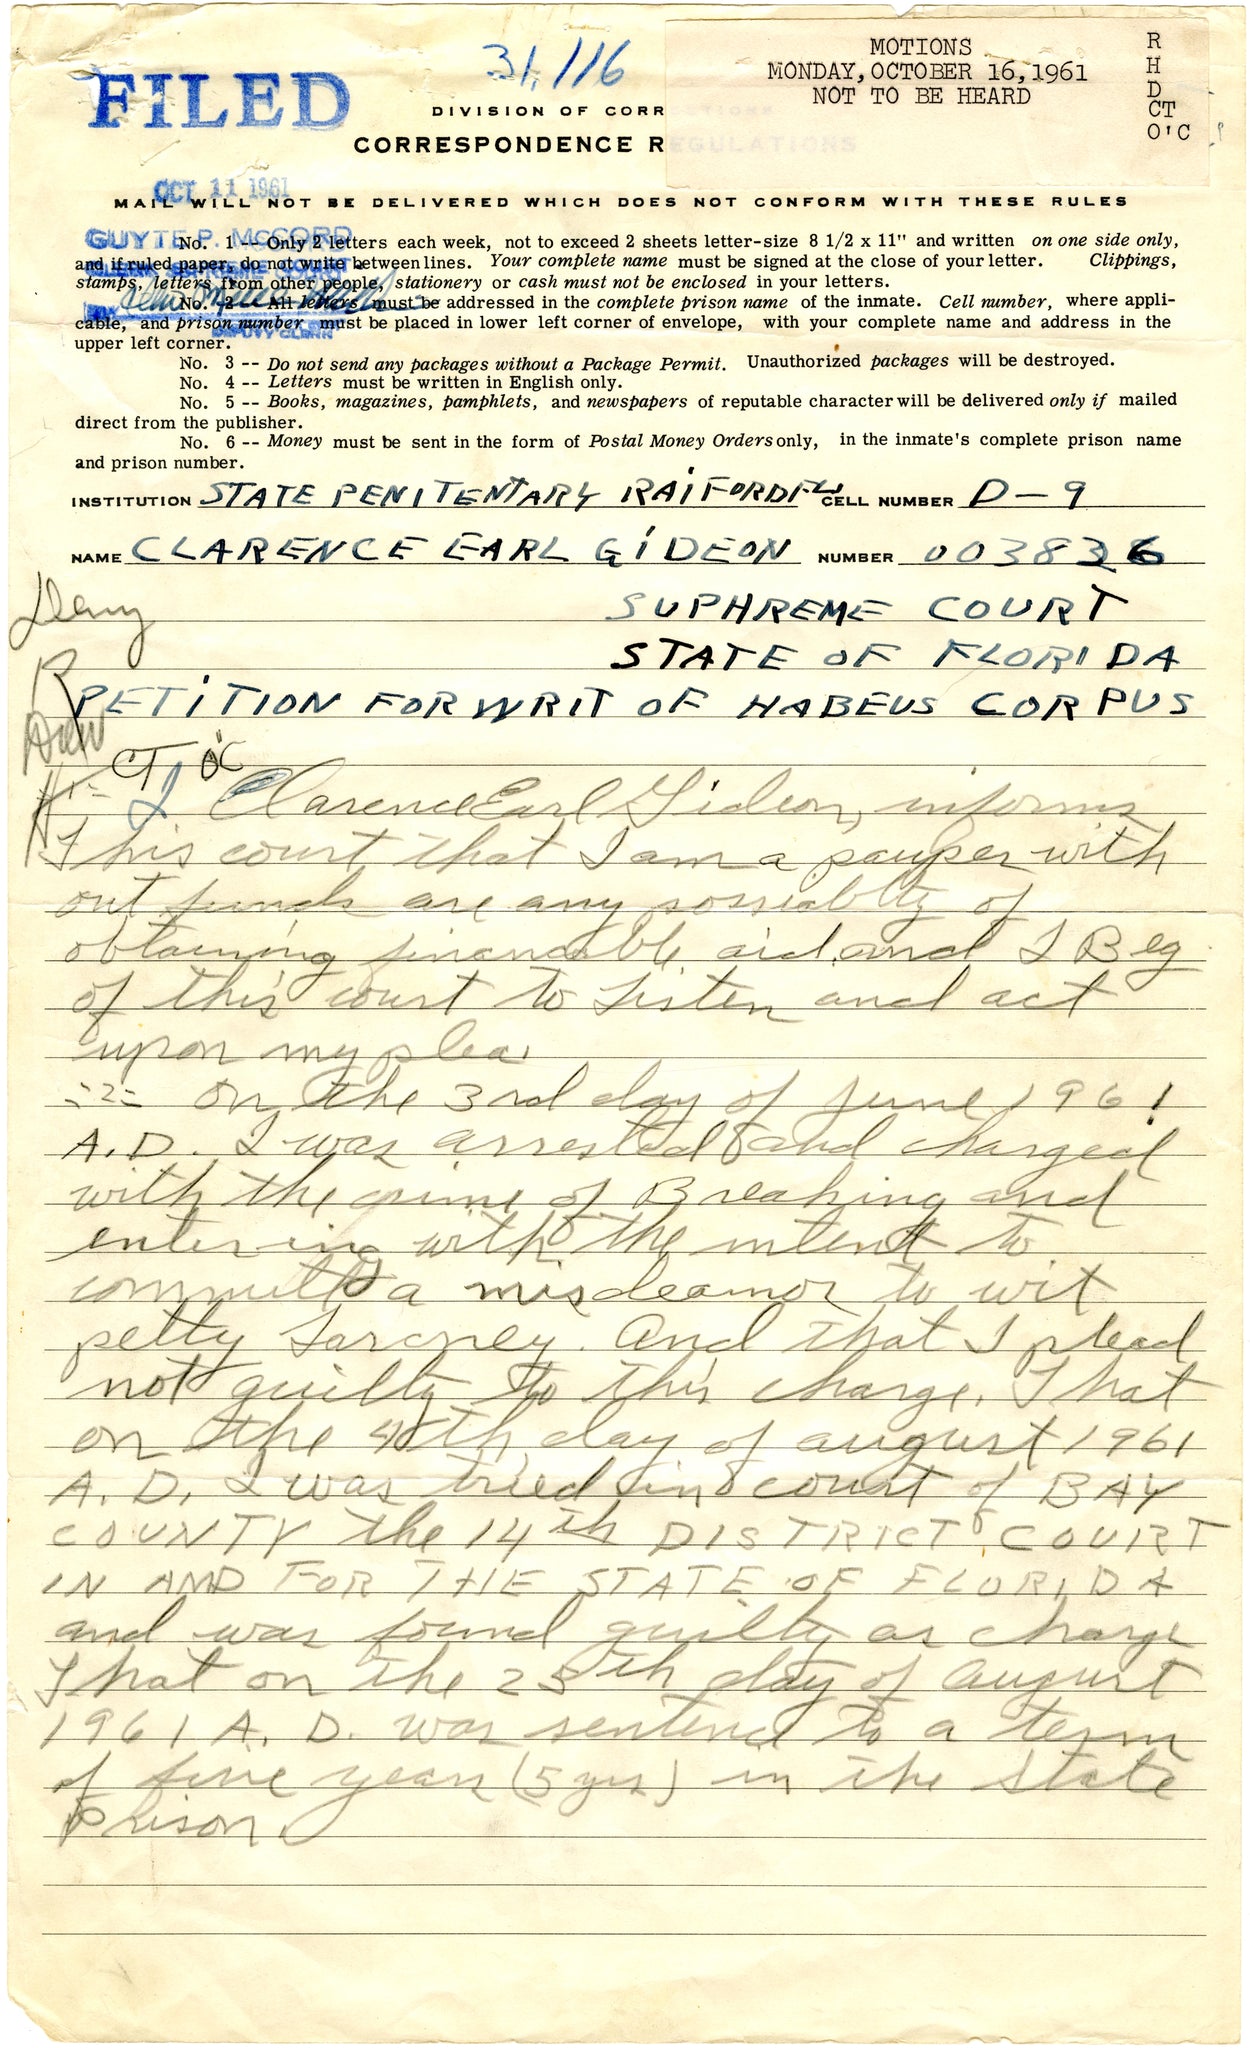 31,116
MOTIONS
MONDAY, OCTOBER 16, 1961
NOT TO BE HEARD
R
H
D
CT
O'C
FILED
DIVISION OF CORRECTIONS
CORRESPONDENCE REGULATIONS
OCT 11 1961
MAIL WILL NOT BE DELIVERED WHICH DOES NOT CONFORM WITH THESE RULES
GUYTE P. McCORD
CLERK SUPREME COURT
DEPUTY CLERK
No. 1 -- Only 2 letters each week, not to exceed 2 sheets letter-size 8 1/2 x 11" and written on one side only,
and if ruled paper, do not write between lines. Your complete name must be signed at the close of your letter. Clippings,
stamps, letters from other people, stationery or cash must not be enclosed in your letters.
No. 2 -- All letters must be addressed in the complete prison name of the inmate. Cell number, where appli-
cable, and prison number must be placed in lower left corner of envelope, with your complete name and address in the
upper left corner.
No. 3 -- Do not send any packages without a Package Permit. Unauthorized packages will be destroyed.
No. 4 -- Letters must be written in English only.
No. 5 -- Books, magazines, pamphlets, and newspapers of reputable character will be delivered only if mailed
direct from the publisher.
No. 6 -- Money must be sent in the form of Postal Money Orders only, in the inmate's complete prison name
and prison number.
INSTITUTION STATE PENITENTARY RAIFORD FL CELL NUMBER D-9
NAME CLARENCE EARL GIDEON NUMBER 003826
Deny
R
Drew
H
CT OC
SUPHREME COURT
STATE OF FLORIDA
PETITION FOR WRIT OF HABEUS CORPUS
-1- I Clarence Earl Gideon, informs
This court that I am a pauper with
out funds are any possiablty of
obtaining financable aid and I Beg
of this court to Listen and act
upon my plea
-2- On the 3rd day of June 1961
A.D. I was arrested and charged
with the crime of Breaking and
entering with the intent to
committ a misdeamor to wit
petty Larcney. And that I plead
not guilty to this charge. That
on the 4th day of august 1961
A.D. I was tried in court of BAY
COUNTY the 14th DISTRICT COURT
IN AND FOR THE STATE OF FLORIDA
and was found guilty as charge
That on the 25th day of august
1961 A.D. was sentenc to a term
of five years (5 yrs) in the State
Prison.